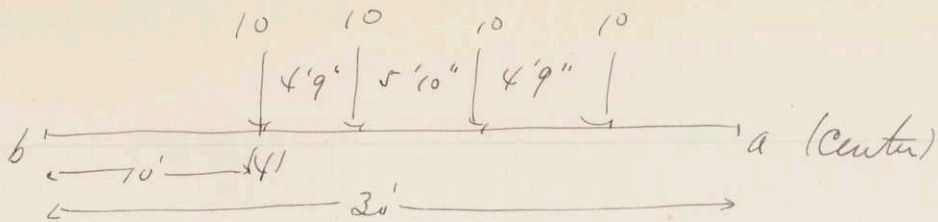 10 10 10 10
4'9" 5'10" 4'9"
b a (Center)
10'
30'